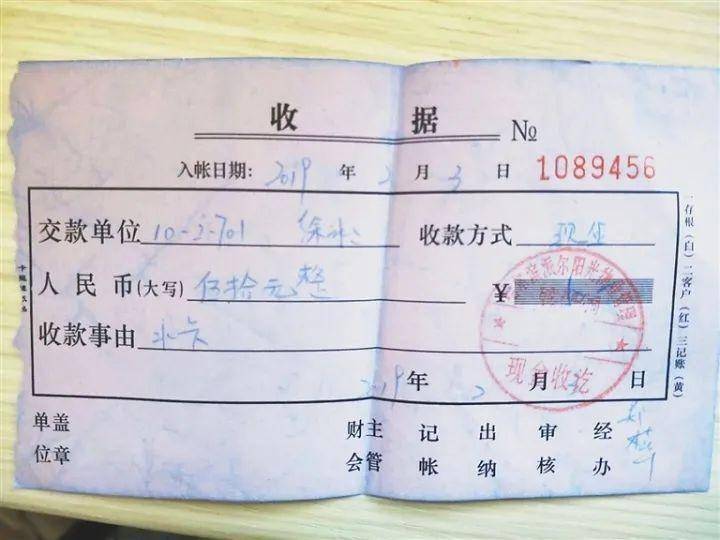 收 据 №
入帐日期: 2019 年 2 月 3 日 1089456
交款单位 10-2-701 徐 收款方式 现金
人民币(大写) 伍拾元整 ¥
收款事由 水卡
2019 年 2 月 日
现金收讫
单盖 财主 记 出 审 经
位章 会管 帐 纳 核 办
一存根(白)二客户(红)三记账(黄)